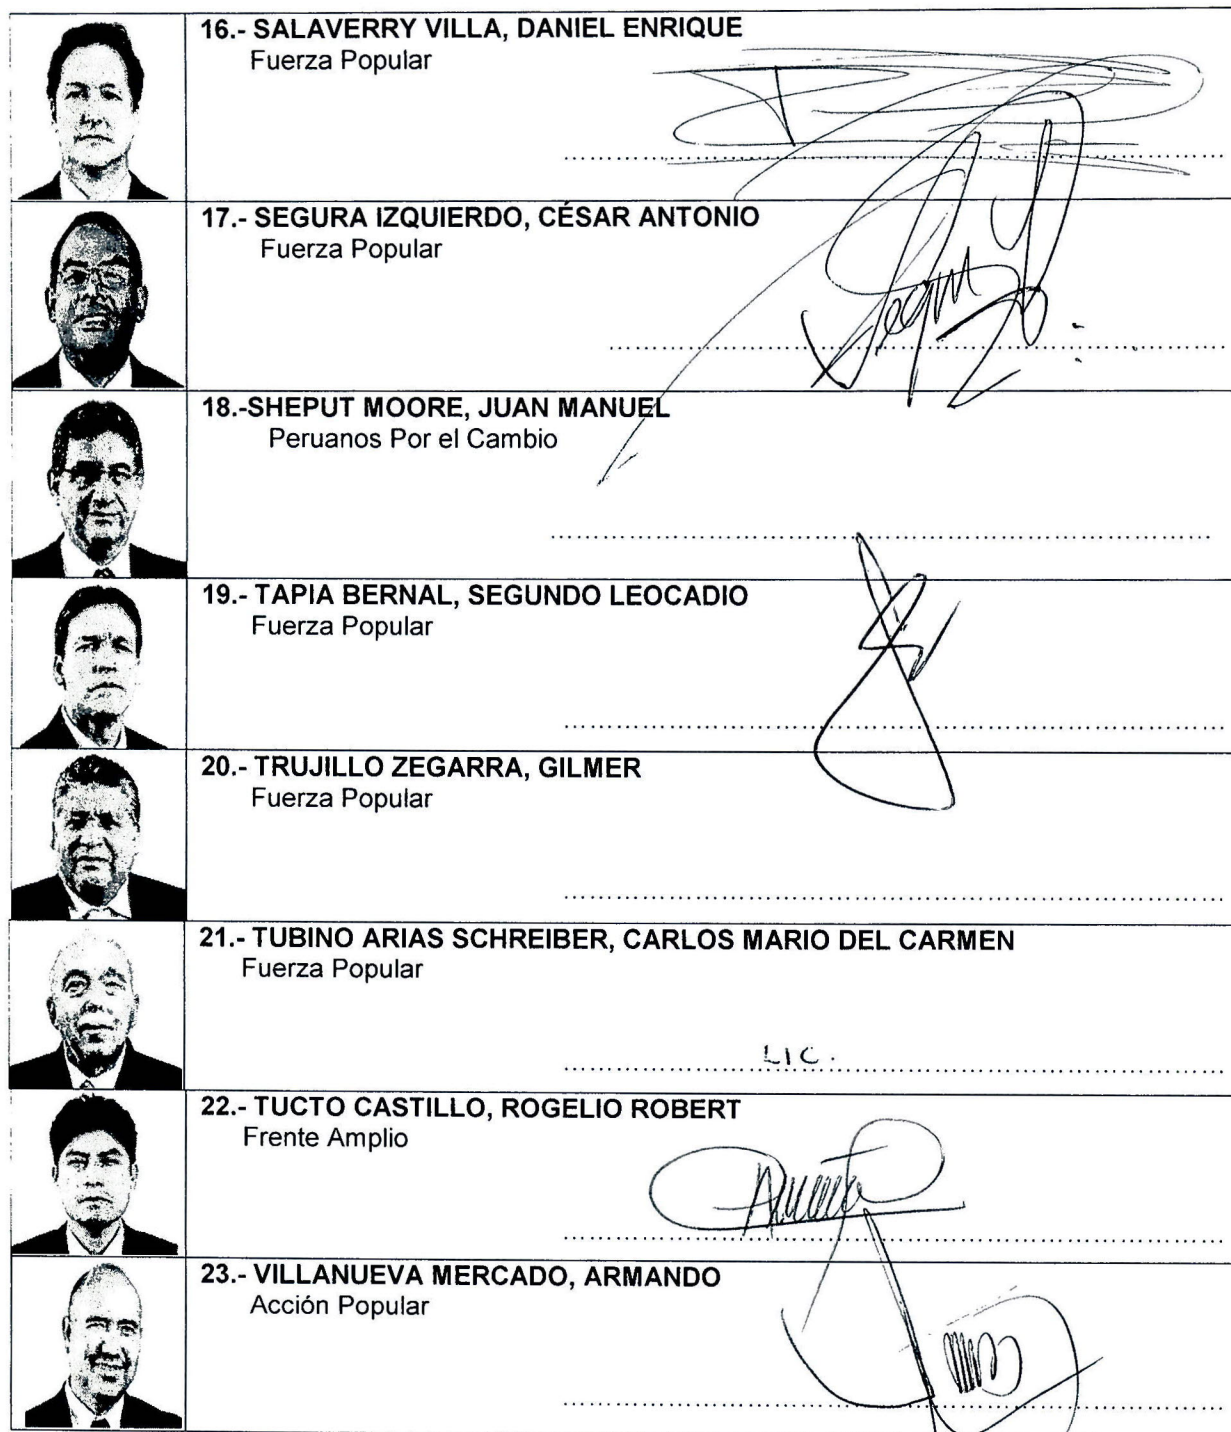 16.- SALAVERRY VILLA, DANIEL ENRIQUE
Fuerza Popular
17.- SEGURA IZQUIERDO, CÉSAR ANTONIO
Fuerza Popular
18.-SHEPUT MOORE, JUAN MANUEL
Peruanos Por el Cambio
19.- TAPIA BERNAL, SEGUNDO LEOCADIO
Fuerza Popular
20.- TRUJILLO ZEGARRA, GILMER
Fuerza Popular
21.- TUBINO ARIAS SCHREIBER, CARLOS MARIO DEL CARMEN
Fuerza Popular
LIC.
22.- TUCTO CASTILLO, ROGELIO ROBERT
Frente Amplio
23.- VILLANUEVA MERCADO, ARMANDO
Acción Popular